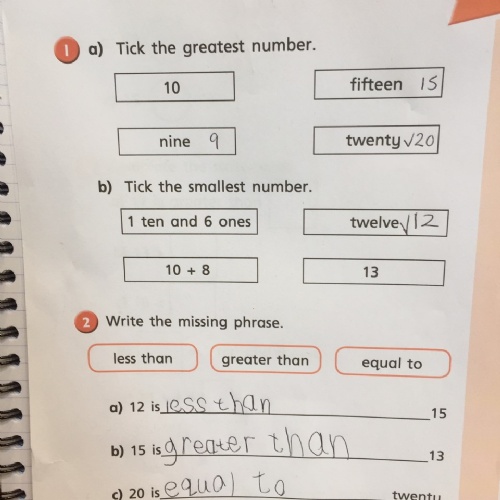 1 a) Tick the greatest number.
10 fifteen 15
nine 9 twenty ✓20
b) Tick the smallest number.
1 ten and 6 ones twelve ✓12
10 + 8 13
2 Write the missing phrase.
less than greater than equal to
a) 12 is less than 15
b) 15 is greater than 13
c) 20 is equal to twenty